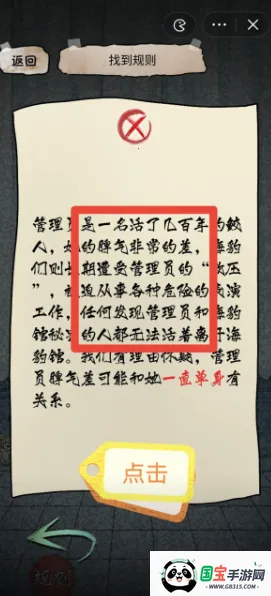 返回
找到规则
管理员是一名活了几百年的鲛
人，她的脾气非常的差，海豹
们则长期遭受管理员的“欺压
”，被迫从事各种危险的表演
工作，任何发现管理员和海豹
馆秘密的人都无法活着离开海
豹馆。我们有理由怀疑，管理
员脾气差可能和她一直单身有
关系。
点击
规则
国宝手游网
WWW.GB315.COM